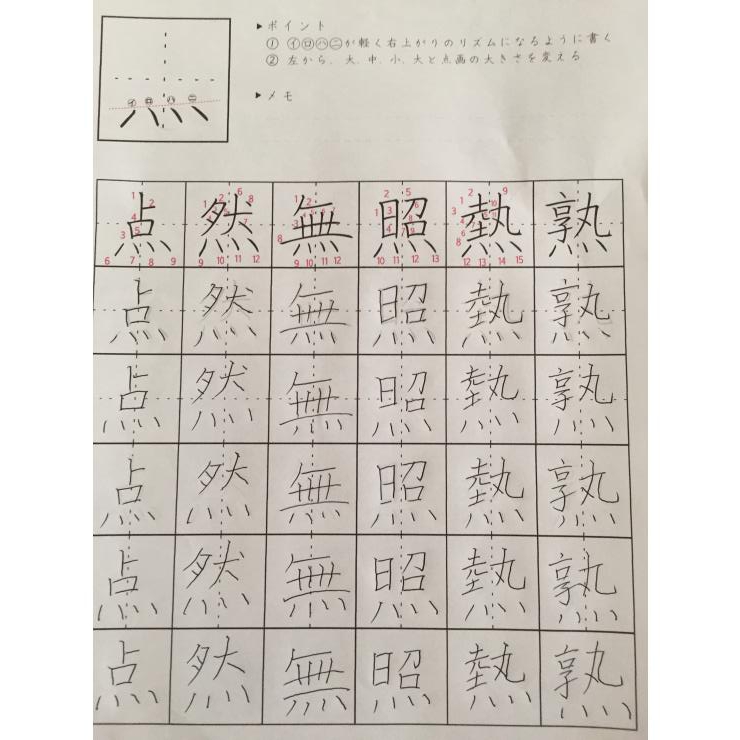 ▶ポイント
① ㋑㋺㋩㊁が軽く右上がりのリズムになるように書く
② 左から、大、中、小、大と点画の大きさを変える
▶メモ
㋑ ㋺ ㋩ ㊁
灬
点 然 無 照 熱 熟
点 然 無 照 熱 熟
点 然 無 照 熱 熟
点 然 無 照 熱 熟
点 然 無 照 熱 熟
点 然 無 照 熱 熟